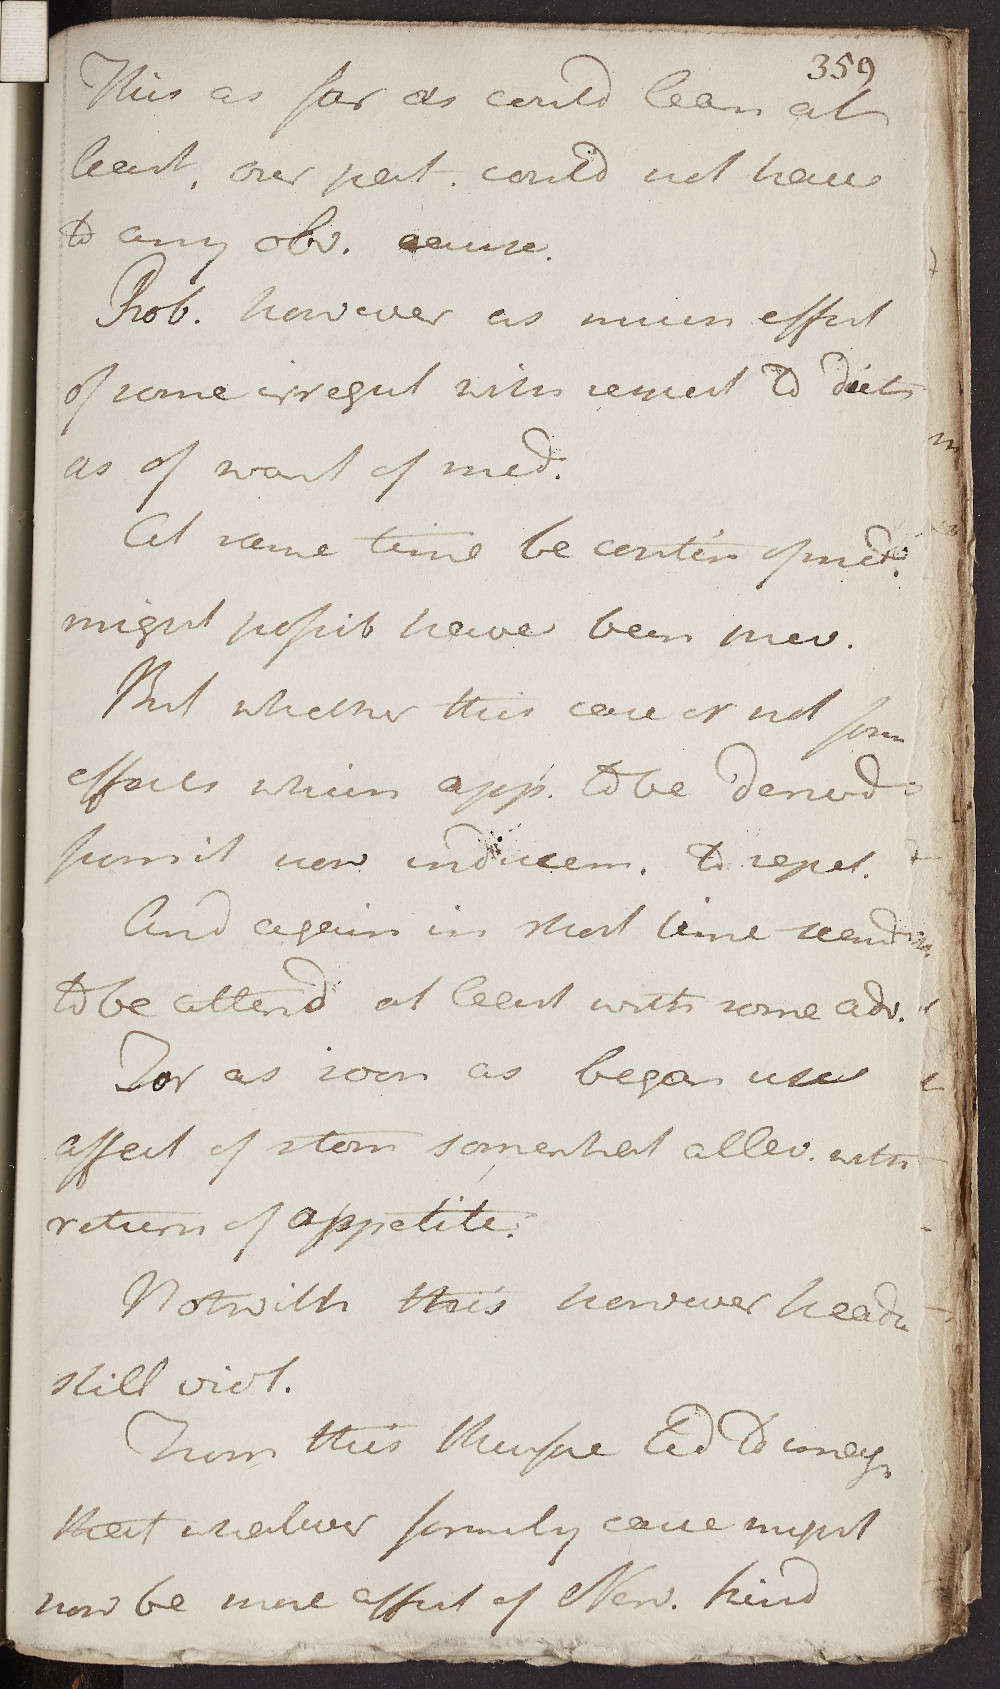 359
This as far as could lean at
least, our pat. could not have
to any obv. cause.
Prob. however as much effect
of some irregul with respect to diet
as of want of med.
At same time be contin of med.
might possib have been prev.
But whether this case or not from
effects which app. to be derivd
from it now inducem. to repet.
And again in short time seemd
to be attend at least with some adv.
For as soon as began use
affect of stom somewhat allev. with
return of appetite.
Notwith this however heada
still viol.
From this therefore led to imag.
that whatever formerly case might
now be more effect of Nerv. kind